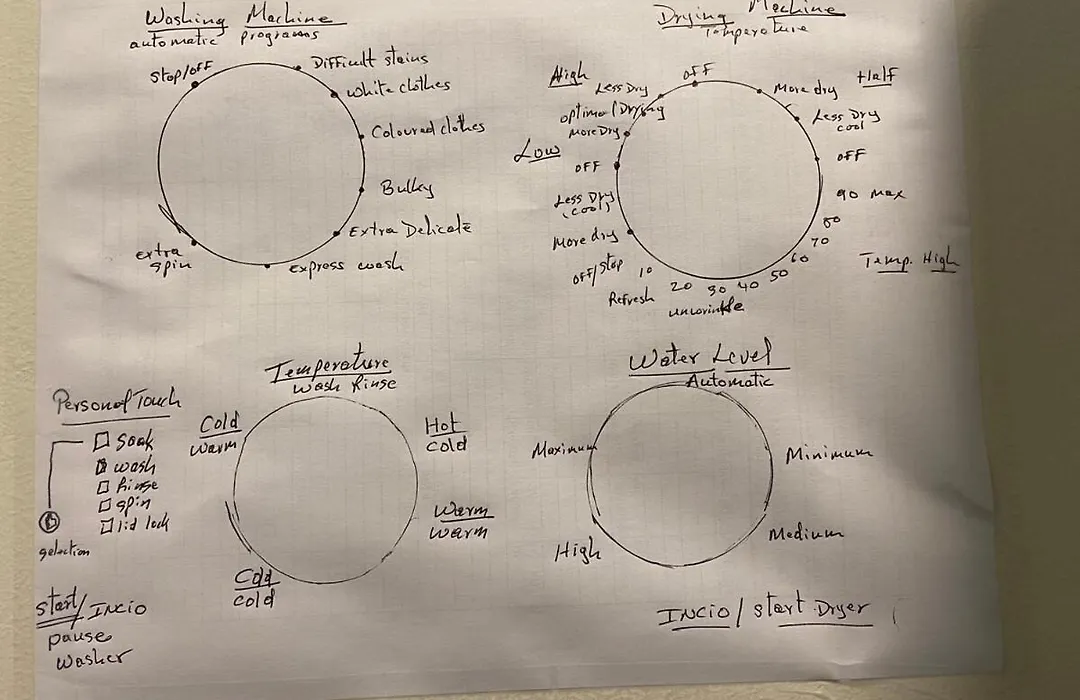 Washing Machine
automatic programs
Stop/OFF
Difficult stains
White clothes
Coloured clothes
Bulky
Extra Delicate
Express wash
extra
spin
Drying Machine
Temperature
High
Less Dry
optimal Drying
More Dry
Low
OFF
Less Dry
(cool)
More dry
OFF/Stop
OFF
More dry
Half
Less Dry
cool
OFF
90 Max
80
70
60
50
40
30
20
10
Refresh
unwrinkle
Temp. High
Temperature
Wash Rinse
Cold
warm
Hot
cold
Warm
warm
Cold
cold
Water Level
Automatic
Maximum
Minimum
Medium
High
Personal Touch
soak
wash
Rinse
spin
lid lock
selection
start/INCIO
pause
washer
INCIO/start Dryer